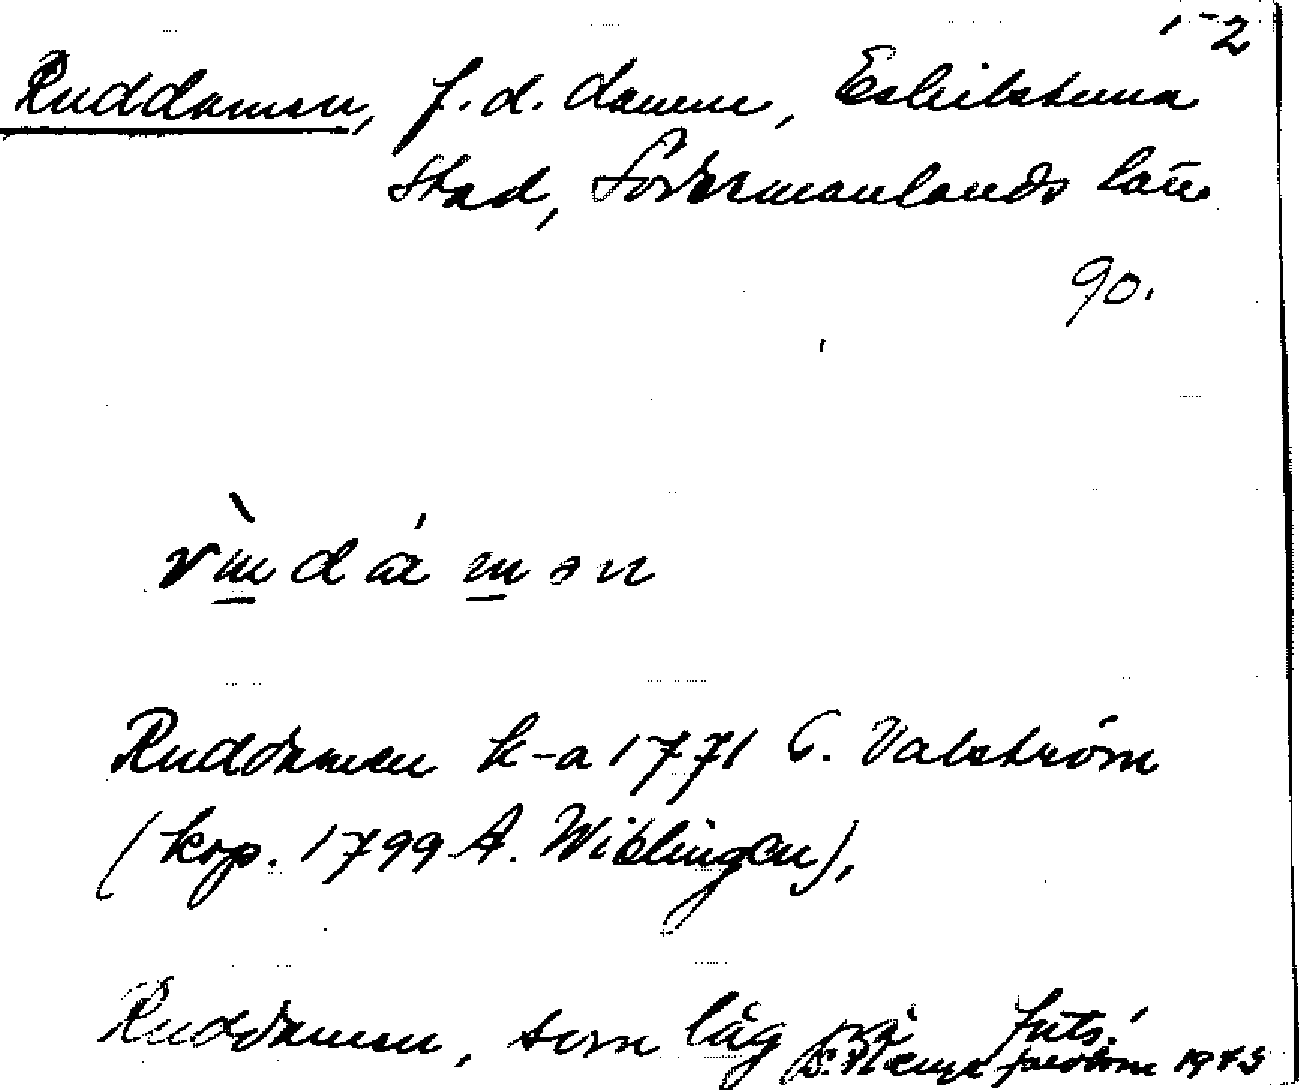 1-2
Ruddammen, f.d. damm, Eskilstuna
Stad, Södermanlands län
90.
Ruddammen k-a 1771 C. Valström
(kop. 1799 A. Wiblingen),
Ruddammen, som låg på forts!
1973